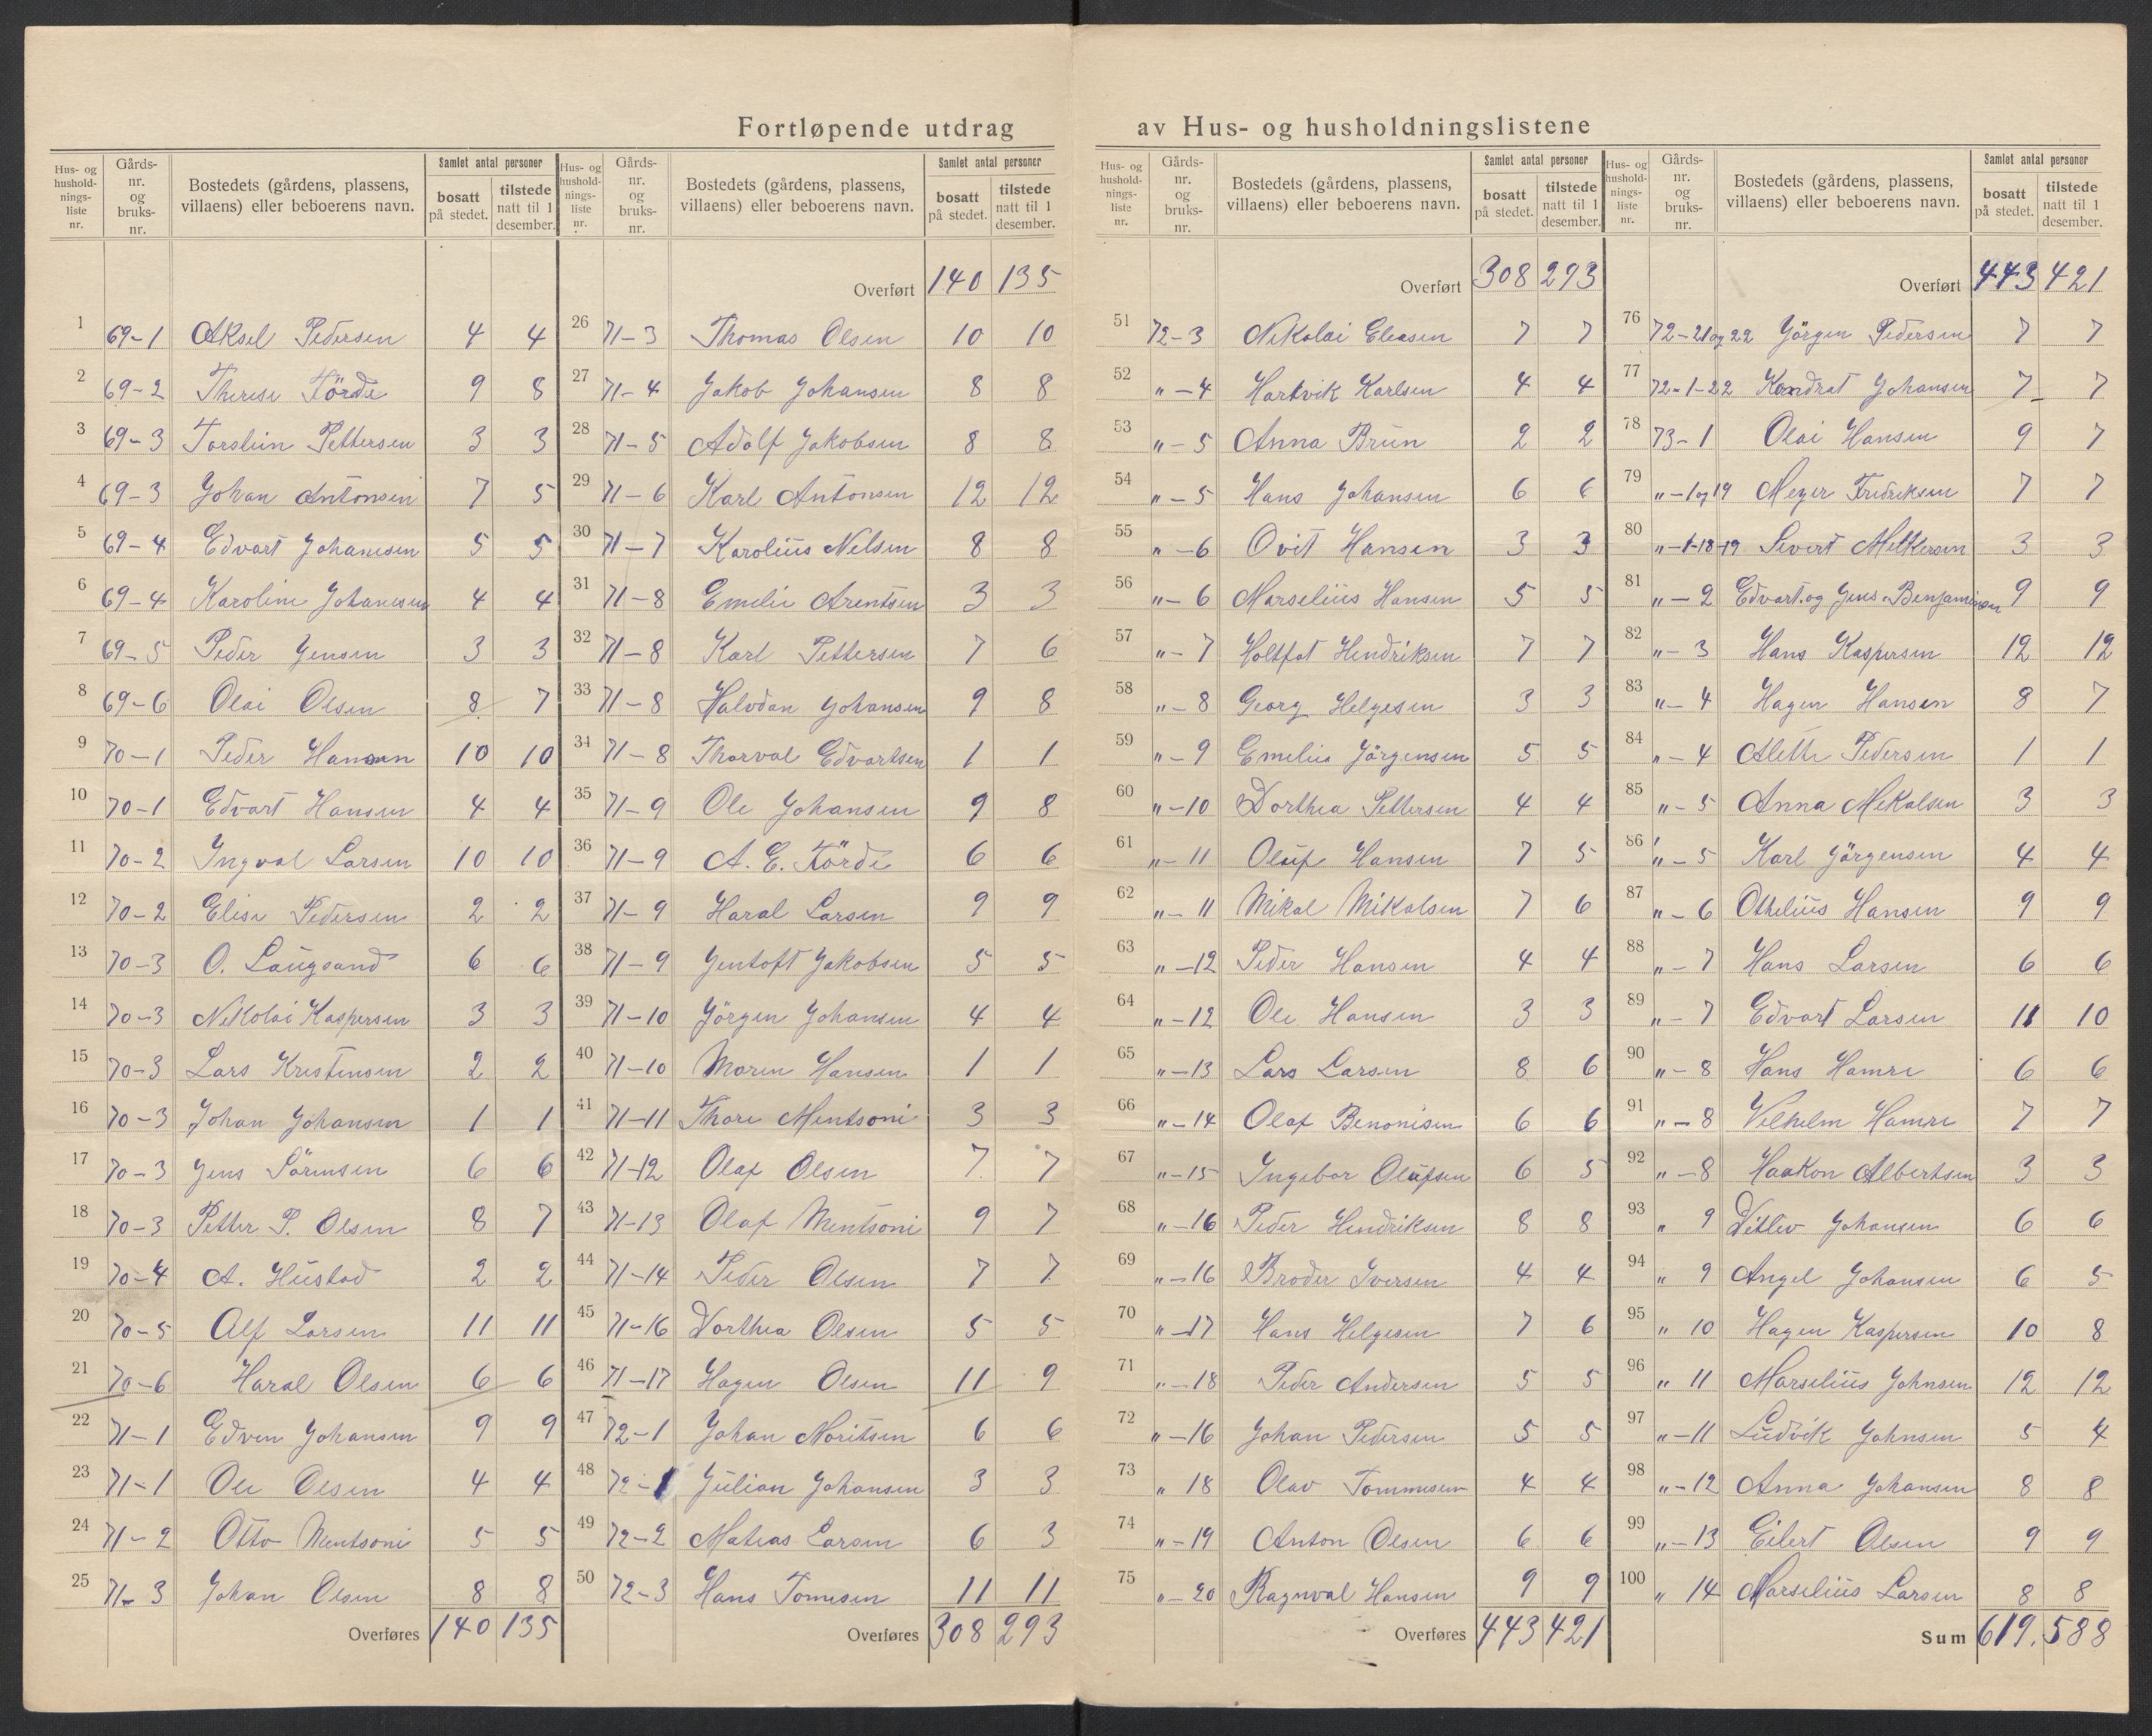 Fortløpende utdrag av Hus- og husholdningslistene
Hus- og hushold-nings-liste nr. Gårds-nr. og bruks-nr. Bostedets (gårdens, plassens, villaens) eller beboerens navn. Samlet antal personer bosatt på stedet. tilstede natt til 1 desember.
1 69-1 Aksel Pedersen 4 4
2 69-2 Therese Förde 9 8
3 69-3 Torstein Pettersen 3 3
4 69-3 Johan Antonsen 7 5
5 69-4 Edvart Johansen 5 5
6 69-4 Karoline Johansen 4 4
7 69-5 Peder Jensen 3 3
8 69-6 Olai Olsen 8 7
9 70-1 Peder Hansen 10 10
10 70-1 Edvart Hansen 4 4
11 70-2 Ingval Larsen 10 10
12 70-2 Elise Pedersen 2 2
13 70-3 O. Laugsand 6 6
14 70-3 Nikolai Kaspersen 3 3
15 70-3 Lars Kristensen 2 2
16 70-3 Johan Johansen 1 1
17 70-3 Jens Sörensen 6 6
18 70-3 Petter P. Olsen 8 7
19 70-4 A. Hustad 2 2
20 70-5 Alf Larsen 11 11
21 70-6 Haral Olsen 6 6
22 71-1 Edven Johansen 9 9
23 71-1 Ole Olsen 4 4
24 71-2 Otto Mentsoni 5 5
25 71-3 Johan Olsen 8 8
Overføres 140 135
Hus- og hushold-nings-liste nr. Gårds-nr. og bruks-nr. Bostedets (gårdens, plassens, villaens) eller beboerens navn. Samlet antal personer bosatt på stedet. tilstede natt til 1 desember.
Overført 140 135
26 71-3 Thomas Olsen 10 10
27 71-4 Jakob Johansen 8 8
28 71-5 Adolf Jakobsen 8 8
29 71-6 Karl Antonsen 12 12
30 71-7 Karolius Nelsen 8 8
31 71-8 Emelie Arentsen 3 3
32 71-8 Karl Pettersen 7 6
33 71-8 Halvdan Johansen 9 8
34 71-8 Thorval Edvartsen 1 1
35 71-9 Ole Johansen 9 8
36 71-9 A. E. Förde 6 6
37 71-9 Haral Larsen 9 9
38 71-9 Jentoft Jakobsen 5 5
39 71-10 Jörgen Johansen 4 4
40 71-10 Maren Hansen 1 1
41 71-11 Thore Mentsoni 3 3
42 71-12 Olaf Olsen 7 7
43 71-13 Olaf Mentsoni 9 7
44 71-14 Peder Olsen 7 7
45 71-16 Dorthea Olsen 5 5
46 71-17 Hagen Olsen 11 9
47 72-1 Johan Moritsen 6 6
48 72-1 Julian Johansen 3 3
49 72-2 Matias Larsen 6 3
50 72-3 Hans Tomesen 11 11
Overføres 308 293
Hus- og hushold-nings-liste nr. Gårds-nr. og bruks-nr. Bostedets (gårdens, plassens, villaens) eller beboerens navn. Samlet antal personer bosatt på stedet. tilstede natt til 1 desember.
Overført 308 293
51 72-3 Nikolai Eleasen 7 7
52 "-4 Hartvik Karlsen 4 4
53 "-5 Anna Brun 2 2
54 "-5 Hans Johansen 6 6
55 "-6 Ovit Hansen 3 3
56 "-6 Marselius Hansen 5 5
57 "-7 Holtfot Hendriksen 7 7
58 "-8 Georg Helgesen 3 3
59 "-9 Emelie Jörgensen 5 5
60 "-10 Dorthea Pettersen 4 4
61 "-11 Oluf Hansen 7 5
62 "-11 Mikal Mikalsen 7 6
63 "-12 Peder Hansen 4 4
64 "-12 Ole Hansen 3 3
65 "-13 Lars Larsen 8 6
66 "-14 Olaf Benonisen 6 6
67 "-15 Ingebor Olufsen 6 5
68 "-16 Peder Hendriksen 8 8
69 "-16 Broder Iversen 4 4
70 "-17 Hans Helgesen 7 6
71 "-18 Peder Andersen 5 5
72 "-16 Johan Pedersen 5 5
73 " 18 Olav Tommesen 4 4
74 "-19 Anton Olsen 6 6
75 "-20 Ragnval Hansen 9 9
Overføres 443 421
Hus- og hushold-nings-liste nr. Gårds-nr. og bruks-nr. Bostedets (gårdens, plassens, villaens) eller beboerens navn. Samlet antal personer bosatt på stedet. tilstede natt til 1 desember.
Overført 443 421
76 72-21 og 22 Jörgen Pedersen 7 7
77 72-1-22 Kondrat Johansen 7 7
78 73-1 Olai Hansen 9 7
79 "-1 og 19 Meyer Fredriksen 7 7
80 "-1-18-19 Sivert Melkersen 3 3
81 "-2 Edvart og Jens Benjaminsen 9 9
82 "-3 Hans Kaspersen 12 12
83 "-4 Hagen Hansen 8 7
84 "-4 Alette Pedersen 1 1
85 "-5 Anna Mekalsen 3 3
86 "-5 Karl Jörgensen 4 4
87 "-6 Othelius Hansen 9 9
88 "-7 Hans Larsen 6 6
89 "-7 Edvart Larsen 11 10
90 "-8 Hans Hamre 6 6
91 "-8 Velhelm Hamre 7 7
92 "-8 Haakon Albertsen 3 3
93 " 9 Ditlev Johansen 6 6
94 " 9 Angel Johansen 6 5
95 " 10 Hagen Kaspersen 10 8
96 " 11 Marselius Johnsen 12 12
97 "-11 Ludvik Johnsen 5 4
98 "-12 Anna Johansen 8 8
99 "-13 Eilert Olsen 9 9
100 " 14 Marselius Larsen 8 8
Sum 619. 588